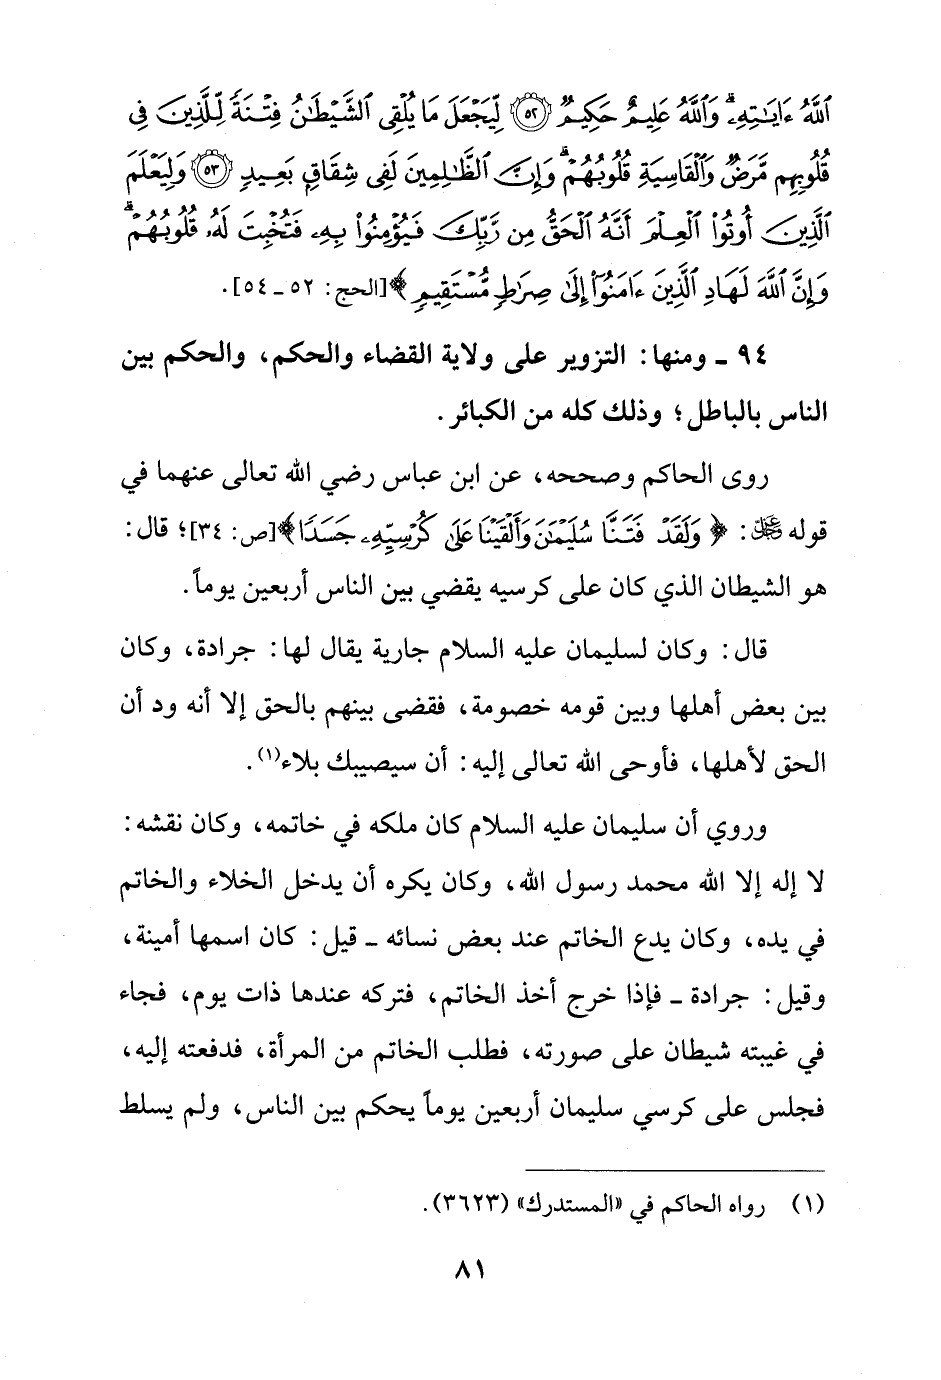 ٱللَّهُ ءَايَٰتِهِۦ ۗ وَٱللَّهُ عَلِيمٌ حَكِيمٌ ﴿٥٢﴾ لِّيَجْعَلَ مَا يُلْقِى ٱلشَّيْطَٰنُ فِتْنَةً لِّلَّذِينَ فِى
قُلُوبِهِم مَّرَضٌ وَٱلْقَاسِيَةِ قُلُوبُهُمْ ۗ وَإِنَّ ٱلظَّٰلِمِينَ لَفِى شِقَاقٍۭ بَعِيدٍ ﴿٥٣﴾ وَلِيَعْلَمَ
ٱلَّذِينَ أُوتُوا۟ ٱلْعِلْمَ أَنَّهُ ٱلْحَقُّ مِن رَّبِّكَ فَيُؤْمِنُوا۟ بِهِۦ فَتُخْبِتَ لَهُۥ قُلُوبُهُمْ ۗ
وَإِنَّ ٱللَّهَ لَهَادِ ٱلَّذِينَ ءَامَنُوٓا۟ إِلَىٰ صِرَٰطٍ مُّسْتَقِيمٍ﴾ [الحج: ٥٢ ـ ٥٤].
٩٤ ـ ومنها: التزوير على ولاية القضاء والحكم، والحكم بين
الناس بالباطل؛ وذلك كله من الكبائر.
روى الحاكم وصححه، عن ابن عباس رضي الله تعالى عنهما في
قوله ﷺ: ﴿وَلَقَدْ فَتَنَّا سُلَيْمَٰنَ وَأَلْقَيْنَا عَلَىٰ كُرْسِيِّهِۦ جَسَدًا﴾ [ص: ٣٤]؛ قال:
هو الشيطان الذي كان على كرسيه يقضي بين الناس أربعين يوماً.
قال: وكان لسليمان عليه السلام جارية يقال لها: جرادة، وكان
بين بعض أهلها وبين قومه خصومة، فقضى بينهم بالحق إلا أنه ود أن
الحق لأهلها، فأوحى الله تعالى إليه: أن سيصيبك بلاء(١).
وروي أن سليمان عليه السلام كان ملكه في خاتمه، وكان نقشه:
لا إله إلا الله محمد رسول الله، وكان يكره أن يدخل الخلاء والخاتم
في يده، وكان يدع الخاتم عند بعض نسائه ـ قيل: كان اسمها أمينة،
وقيل: جرادة ـ فإذا خرج أخذ الخاتم، فتركه عندها ذات يوم، فجاء
في غيبته شيطان على صورته، فطلب الخاتم من المرأة، فدفعته إليه،
فجلس على كرسي سليمان أربعين يوماً يحكم بين الناس، ولم يسلط
(١) رواه الحاكم في «المستدرك» (٣٦٢٣).
٨١